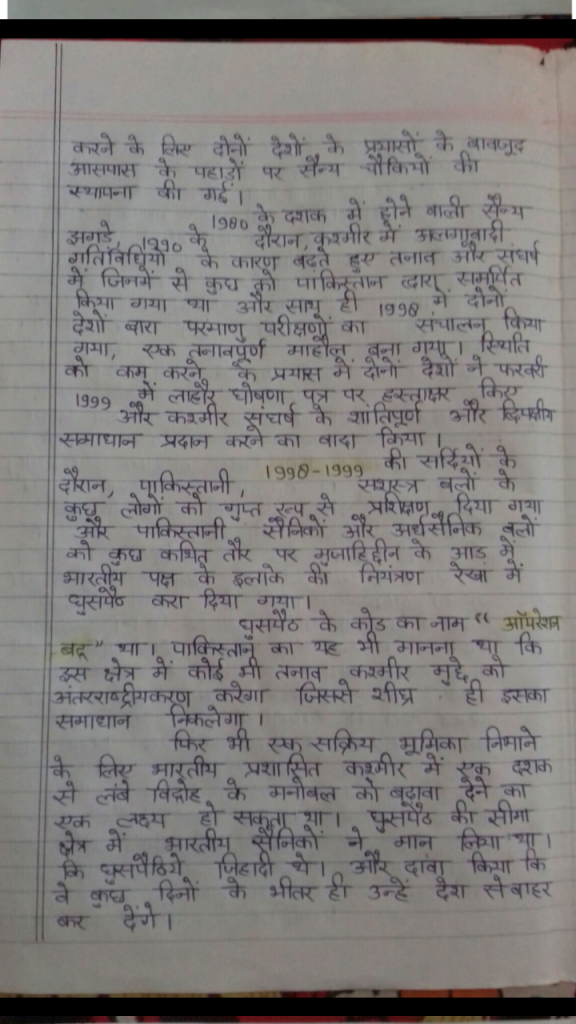 करने के लिए दोनों देशों के प्रयासों के बावजूद
आसपास के पहाड़ों पर सैन्य चौकियों की
स्थापना की गई।
1980 के दशक में होने वाली सैन्य
झगडे, 1990 के दौरान, कश्मीर में अलगावादी
गतिविधियों के कारण बढ़ते हुए तनाव और संघर्ष
में जिनमें से कुछ को पाकिस्तान द्वारा समर्थित
किया गया था और साथ ही 1998 में दोनों
देशों बारा परमाणु परीक्षणों का संचालन किया
गया, एक तनावपूर्ण माहौल बना गया। स्थिति
को कम करने के प्रयास में दोनों देशों ने फरवरी
1999 में लाहौर घोषणा पत्र पर हस्ताक्षर किए
और कश्मीर संघर्ष के शांतिपूर्ण और द्विपक्षीय
समाधान प्रदान करने का वादा किया।
1998-1999 की सर्दियों के
दौरान, पाकिस्तानी, सशस्त्र बलों के
कुछ लोगों को गुप्त रूप से प्रशिक्षण दिया गया
और पाकिस्तानी सैनिकों और अर्धसैनिक बलों
को कुछ कथित तौर पर मुजाहिद्दीन के आड में
भारतीय पक्ष के इलाके की नियंत्रण रेखा में
घुसपैठ करा दिया गया।
घुसपैठ के कोड का नाम "ऑपरेशन
बद्र" था। पाकिस्तान का यह भी मानना था कि
इस क्षेत्र में कोई भी तनाव कश्मीर मुद्दे को
अंतरराष्ट्रीयकरण करेगा जिससे शीघ्र ही इसका
समाधान निकलेगा।
फिर भी एक सक्रिय भूमिका निभाने
के लिए भारतीय प्रशासित कश्मीर में एक दशक
से लंबे विद्रोह के मनोबल को बढ़ावा देने का
एक लक्ष्य हो सकता था। घुसपैठ की सीमा
क्षेत्र में भारतीय सैनिकों ने मान लिया था।
कि घुसपैठिये जिहादी थे। और दावा किया कि
वे कुछ दिनों के भीतर ही उन्हें देश से बाहर
कर देंगे।